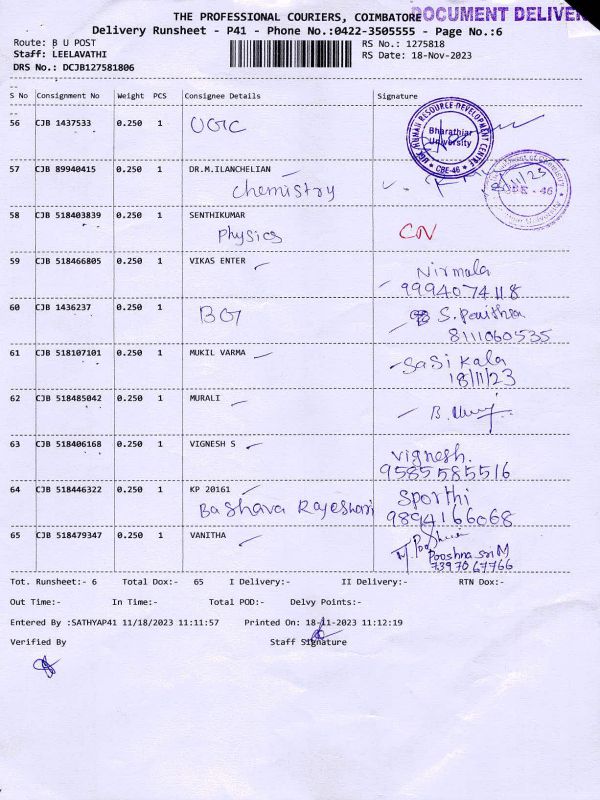 THE PROFESSIONAL COURIERS, COIMBATORE
DOCUMENT DELIVER
Delivery Runsheet - P41 - Phone No.:0422-3505555 - Page No.:6
Route: B U POST
RS No.: 1275818
Staff: LEELAVATHI
RS Date: 18-Nov-2023
DRS No.: DCJB127581806
S No Consignment No Weight PCS Consignee Details Signature
56 CJB 1437533 0.250 1 UGC
HUMAN RESOURCE DEVELOPMENT CENTRE
Bharathiar University
CBE-46
57 CJB 89940415 0.250 1 DR.M.ILANCHELIAN
Chemistry
Department of Chemistry
CBE - 46
58 CJB 518403839 0.250 1 SENTHIKUMAR
Physics
59 CJB 518466805 0.250 1 VIKAS ENTER
Nirmala
9994074118
60 CJB 1436237 0.250 1
S. Pavithra
8111060535
61 CJB 518107101 0.250 1 MUKIL VARMA
Sasi kala
18/11/23
62 CJB 518485042 0.250 1 MURALI
63 CJB 518406168 0.250 1 VIGNESH S
Vignesh.
9585585516
64 CJB 518446322 0.250 1 KP 20161
Bashava Rajeshwari
Sporthi
9894166068
65 CJB 518479347 0.250 1 VANITHA
Pooshna Sri M
7397067766
Tot. Runsheet:- 6 Total Dox:- 65 I Delivery:- II Delivery:- RTN Dox:-
Out Time:- In Time:- Total POD:- Delvy Points:-
Entered By :SATHYAP41 11/18/2023 11:11:57 Printed On: 18-11-2023 11:12:19
Verified By Staff Signature